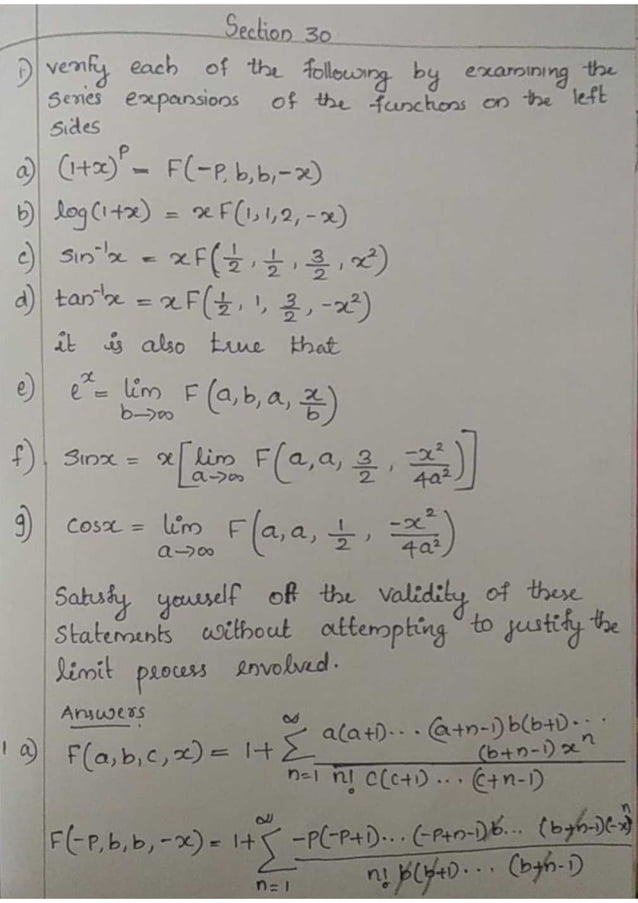 Section 30
1) verify each of the following by examining the
series expansions of the functions on the left
sides
a) (1+x)^p = F(-P, b, b, -x)
b) log(1+x) = x F(1, 1, 2, -x)
c) sin⁻¹x = x F(1/2, 1/2, 3/2, x²)
d) tan⁻¹x = x F(1/2, 1, 3/2, -x²)
it is also true that
e) e^x = lim b→∞ F(a, b, a, x/b)
f) sinx = x[lim a→∞ F(a, a, 3/2, -x²/4a²)]
g) cosx = lim a→∞ F(a, a, 1/2, -x²/4a²)
Satisfy yourself off the validity of these
Statements without attempting to justify the
limit process envolved.
Answers
1 a) F(a, b, c, x) = 1+ ∑_{n=1}^{∞} a(a+1)... (a+n-1) b(b+1)... (b+n-1) x^n / n! c(c+1) ... (c+n-1)
F(-P, b, b, -x) = 1+ ∑_{n=1}^{∞} -P(-P+1)... (-P+n-1) b... (b+n-1)(-x)^n / n! b(b+1)... (b+n-1)